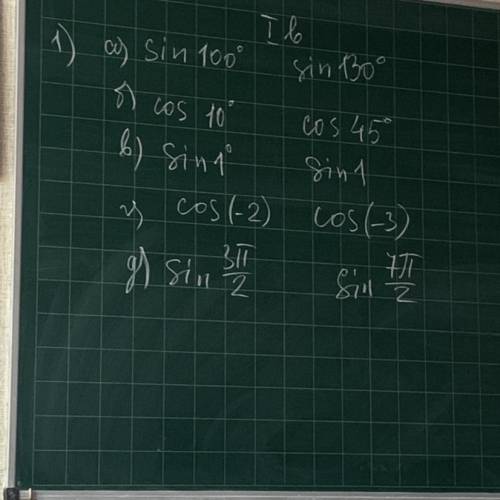 I в
1) а) sin 100° sin 130°
б) cos 10° cos 45°
в) sin 1° sin 1
г) cos(-2) cos(-3)
д) sin 3π/2 sin 7π/2